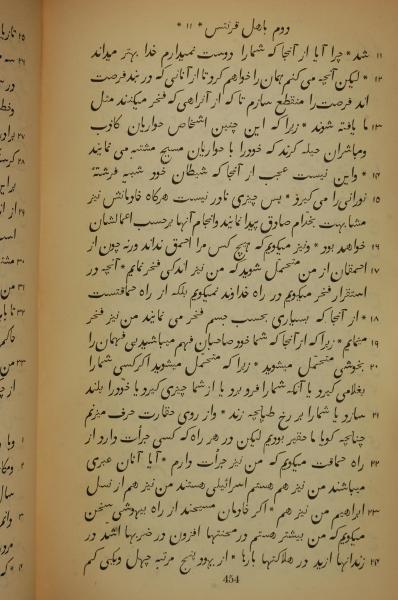 دوم باهل قرنتس * ۱۱ *
۱۱ شد * چرا آیا از آنجا که شمارا دوست نمیدارم خدا بهتر میداند
۱۲ * لیکن آنچه می کنم همان را خواهم کرد تا از آنانی که در بند فرصت
اند فرصت را منقطع سازم تا که از آنراهی که فخر میکنند مثل
۱۳ ما یافته شوند * زیرا که این چنین اشخاص حواریان کاذب
ومباشران حیله کرند که خودرا با حواریان مسیح مشتبه می نمایند
۱۴ * واین نیست عجب از آنجا که شیطان خود شبیه فرشتهٔ
۱۵ نورانی را می گیرد * پس چیزی نادر نیست هرگاه خادمانش نیز
مشابهت بخدام صادق پیدا نمایند وانجام آنها برحسب اعمالشان
۱۶ خواهد بود * ونیز میگویم که هیچ کس مرا احمق نداند ورنه چون از
۱۷ احمقان از من متحمل شوید که من نیز اندکی فخر نمایم * آنچه در
استقرار فخر میگویم در راه خداوند نمیگویم بلکه از راه حماقتست
۱۸ * از آنجا که بسیاری بحسب جسم فخر می نمایند من نیز فخر
۱۹ مینمایم * زیرا که از آنجا که شما خود صاحبان فهم میباشید بی فهمان را
۲۰ بخوشی متحمل میشوید * زیرا که متحمل میشوید اگر کسی شمارا
بغلامی گیرد یا آنکه شمارا فرو برد یا از شما چیزی گیرد یا خودرا بلند
۲۱ سازد یا شمارا بر رخ طپانچه زند * واز روی حقارت حرف میزنم
چنانچه گویا ما حقیر بودیم لیکن در هر راه که کسی جرأت دارد از
۲۲ راه حماقت میگویم که من نیز جرأت دارم * آیا آنان عبری
میباشند من نیز هم هستم اسرائیلی هستند من نیز هم از نسل
۲۳ ابراهیم من نیز هم * اگر خادمان مسیحند از راه بیهوشی سخن
میگویم که من بیشتر هستم در محنتها افزون در ضربها اشد در
۲۴ زندانها ازید در هلاکتها بارها * از یهود پنج مرتبه چهل ویکی کم
454